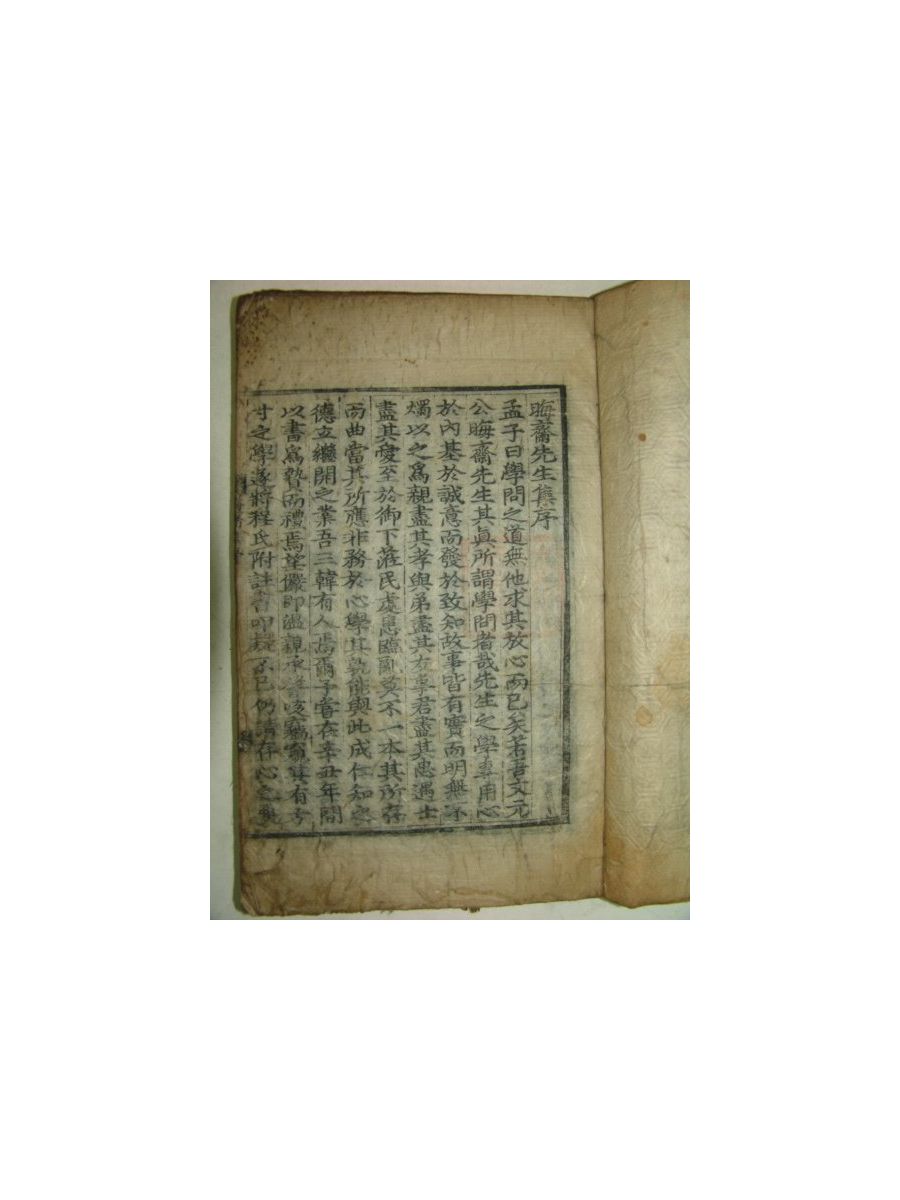 晦齋先生集序
孟子曰學問之道無他求其放心而已矣若吾文元
公晦齋先生其眞所謂學問者哉先生之學專用心
於內基於誠意而發於致知故事皆有實而明無不
燭以之爲親盡其孝與弟盡其友事君盡其忠遇士
盡其愛至於御下莅民處患臨亂莫不一本其所存
而曲當其所應非務於心學其孰能與此成仁知之
德立繼開之業吾三韓有人焉爾予嘗在辛丑年間
以書爲贄而禮焉望儼卽溫親承謦咳竊窺其有
寸之學遂將程氏附註書叩疑不已仍請存心之